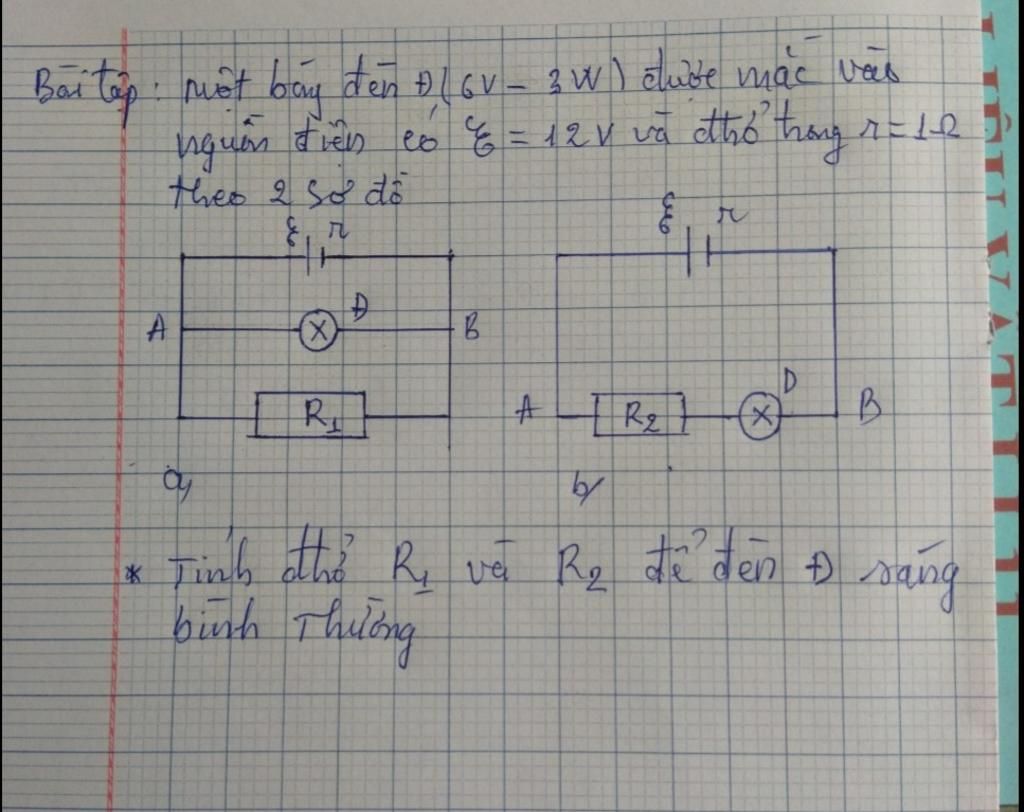 Bài tập: một bóng đèn Đ(6V - 3W) được mắc vào
nguồn điện có ξ = 12V và đthở trong r = 1Ω
theo 2 sơ đồ
ξ r
A Đ B
R1
a,
ξ r
A R2 D B
b/
* Tính đthở R1 và R2 để đèn Đ sáng
bình Thường